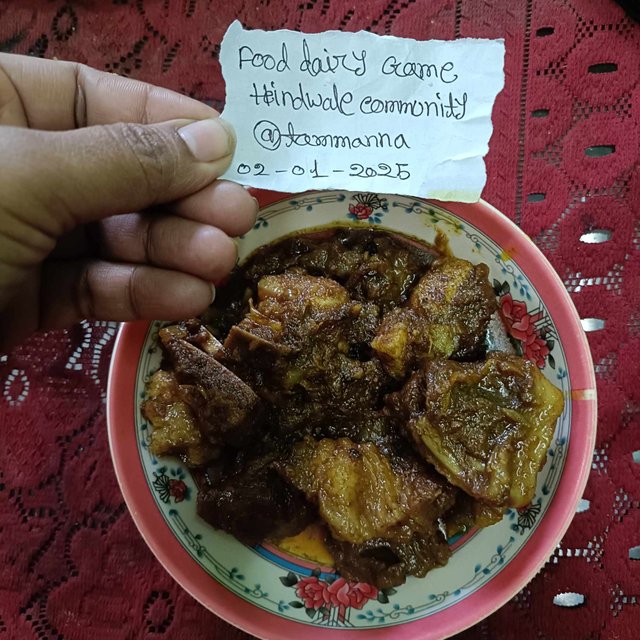 Food dairy Game
Hindwale community
@tammanna
02-01-2025